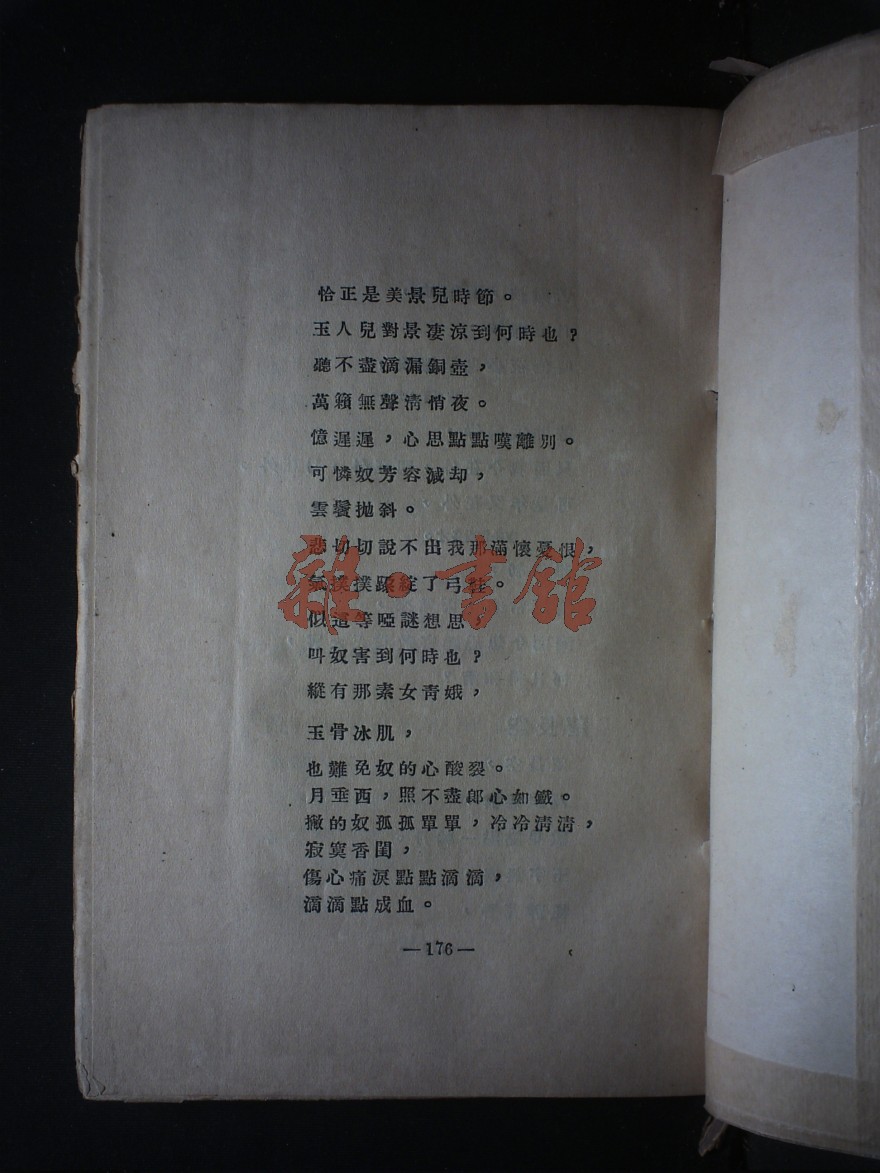 恰正是美景兒時節。
玉人兒對景凄涼到何時也?
聽不盡滴漏銅壺,
萬籟無聲清悄夜。
憶遲遲,心思點點嘆離別。
可憐奴芳容減却,
雲鬢拋斜。
悲切切說不出我那滿懷憂恨,
氣撲撲蹤綻了弓鞋。
似這等啞謎想思,
叫奴害到何時也?
縱有那素女靑娥,
玉骨冰肌,
也難免奴的心酸裂。
月垂西,照不盡郎心如鐵。
撇的奴孤孤單單,冷冷淸淸,
寂寞香閨,
傷心痛淚點點滴滴,
滴滴點成血。
—176—
雜·書館